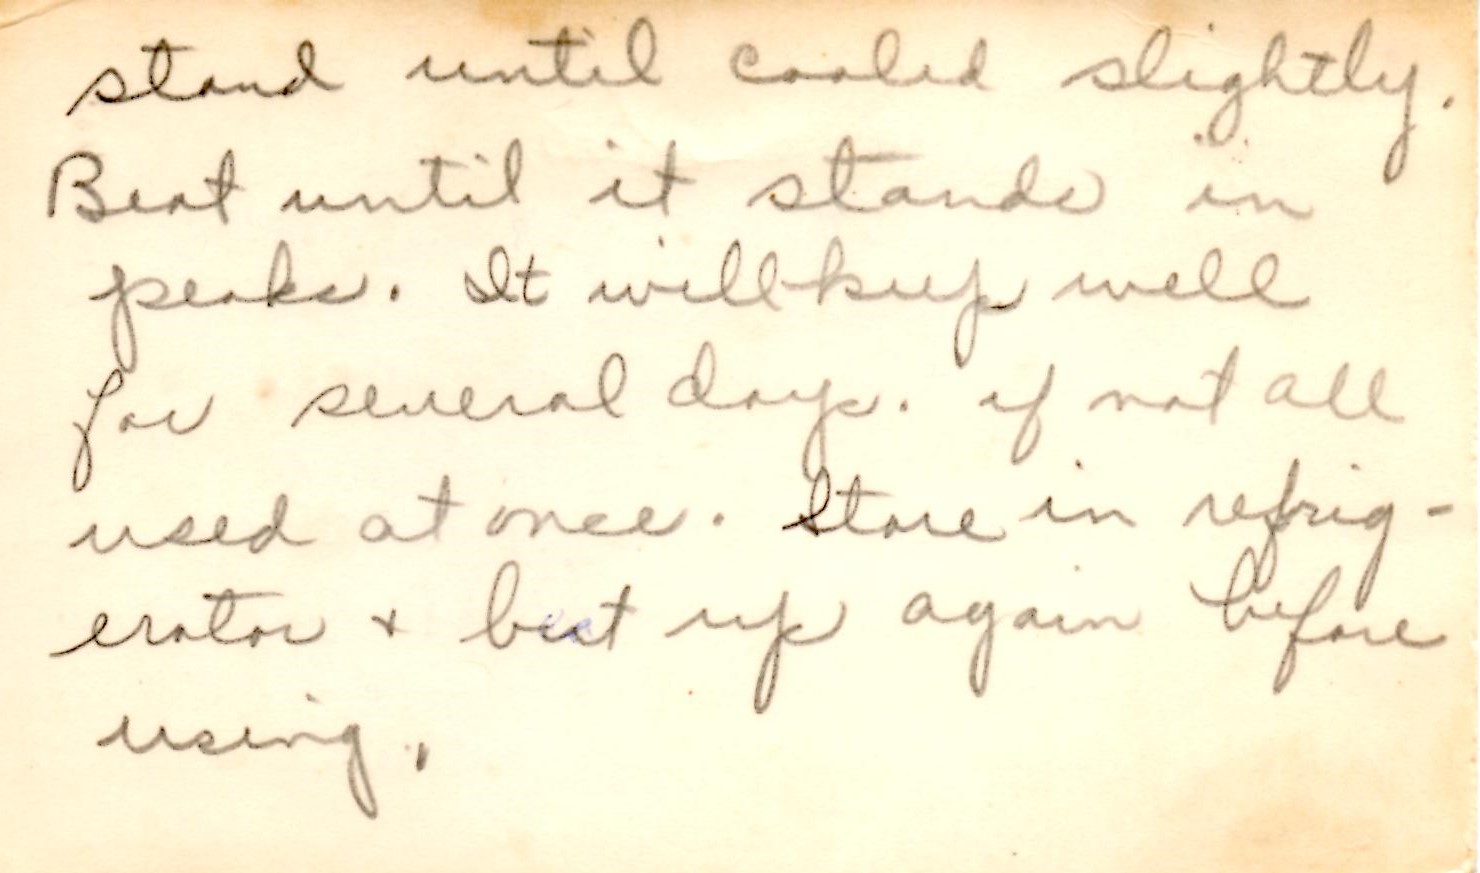 stand until cooled slightly.
Beat until it stands in
peaks. It will keep well
for several days. if not all
used at once. Store in refrig-
erator + beat up again before
using.